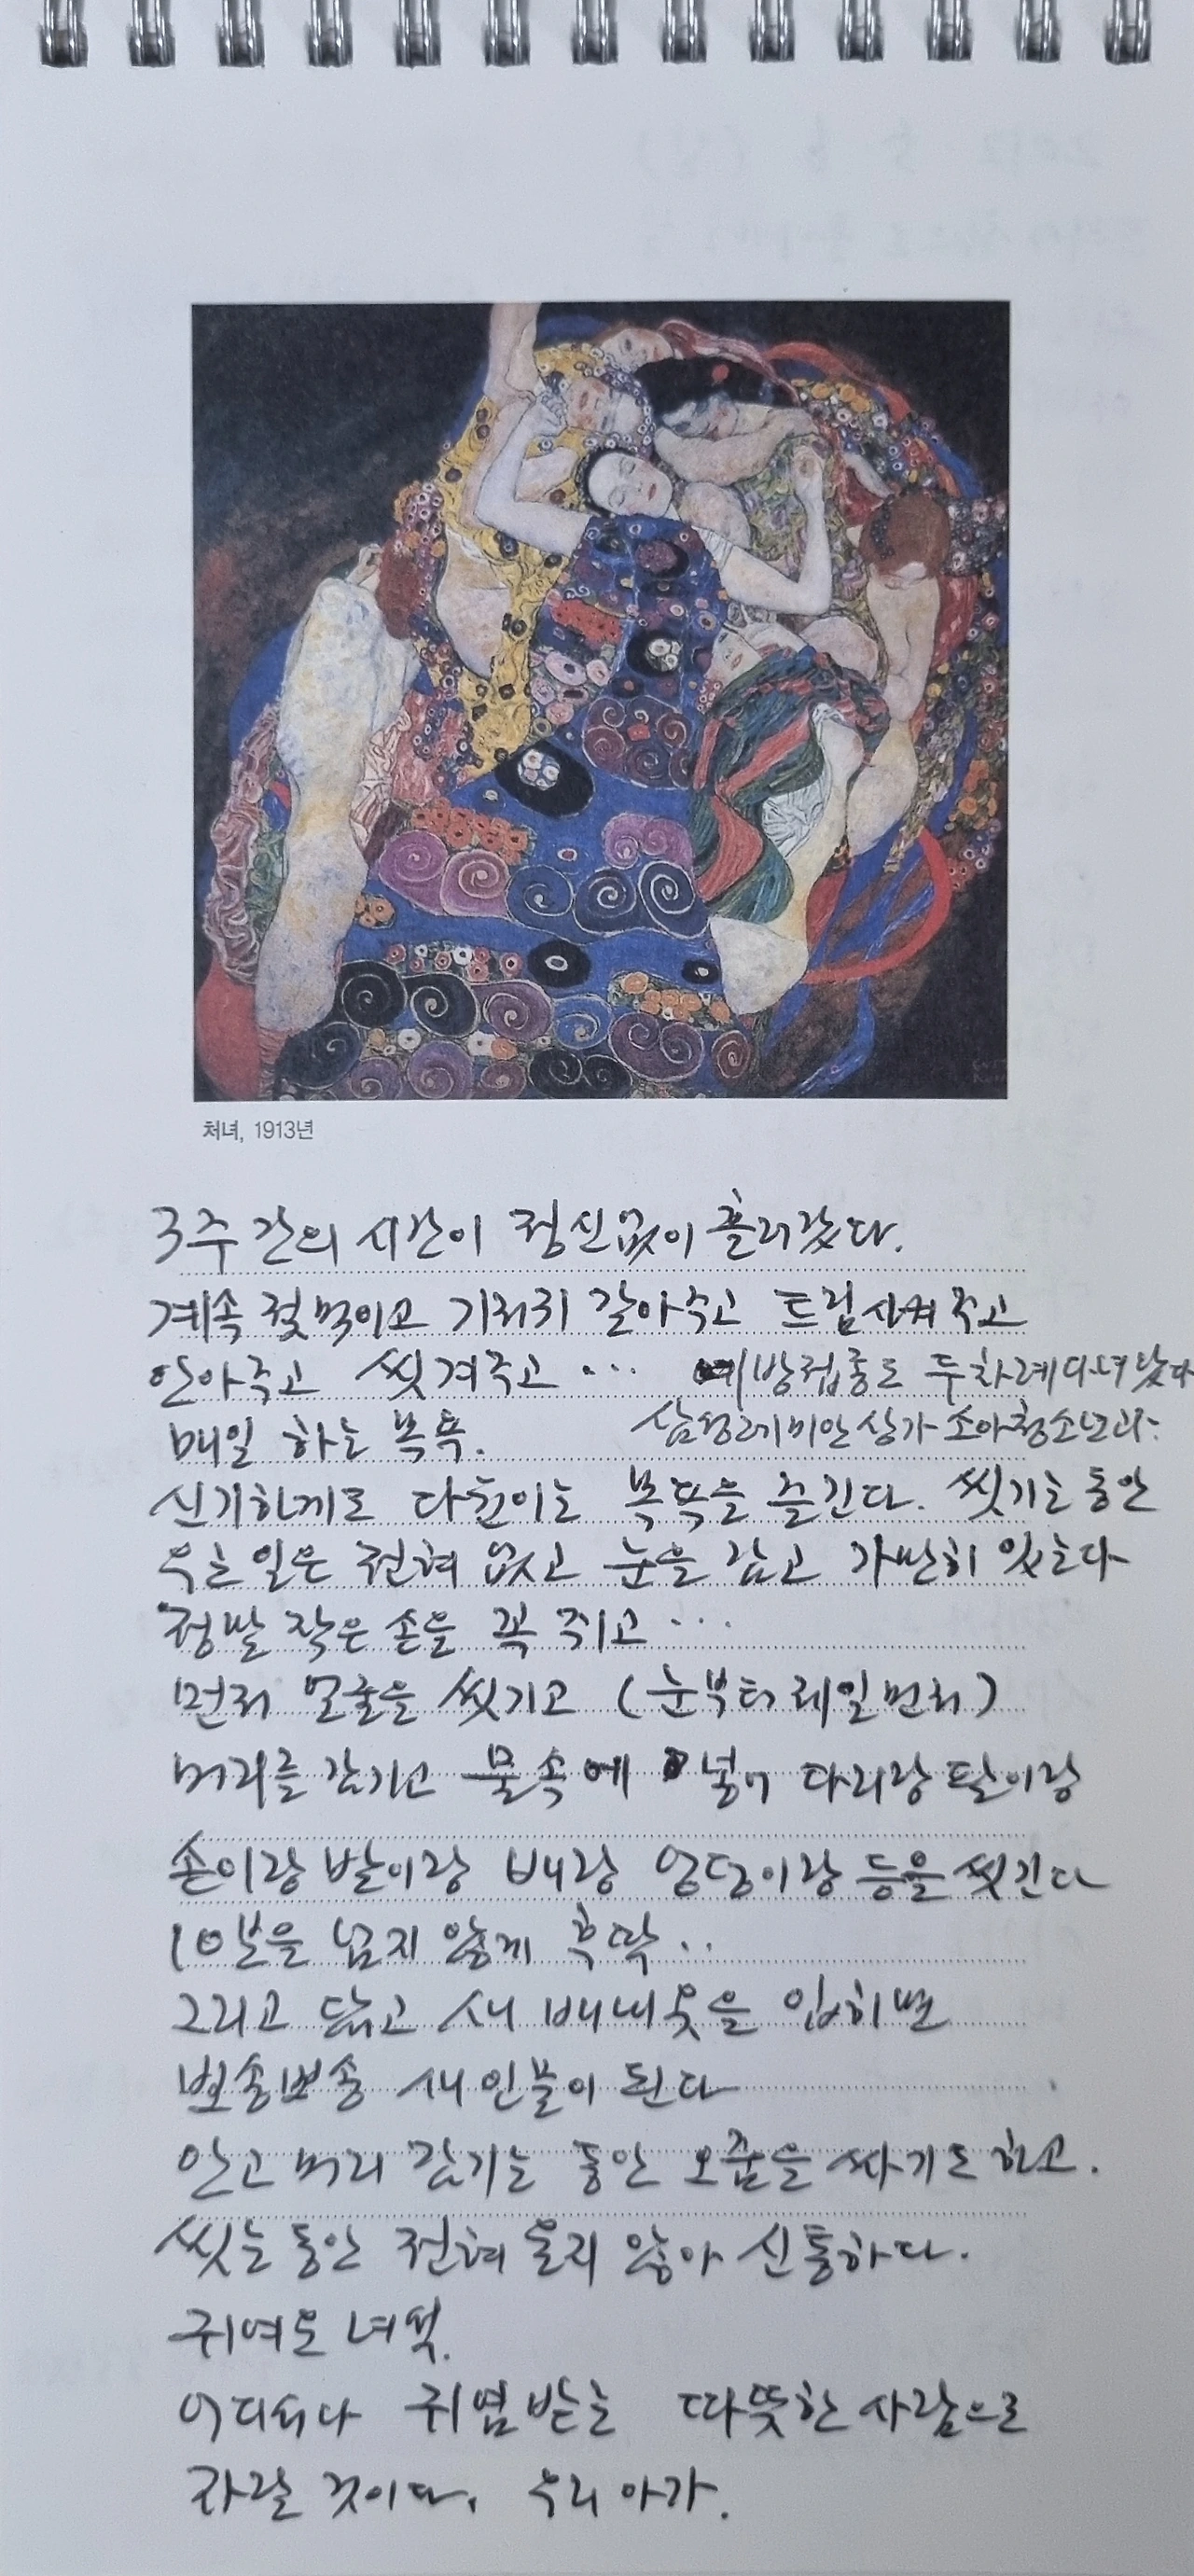 처녀, 1913년
3주간의 시간이 정신없이 흘러갔다.
계속 젖먹이고 기저귀 갈아주고 트림시켜주고
안아주고 씻겨주고 ... 예방접종도 두차례 다녀왔다
매일 하는 목욕. 삼성래미안상가 소아청소년과.
신기하게도 다현이는 목욕을 즐긴다. 씻기는 동안
우는 일은 전혀 없고 눈을 감고 가만히 있는다
정말 작은 손을 꼭 쥐고 ...
먼저 얼굴을 씻기고 (눈부터 제일 먼저)
머리를 감기고 물속에 넣어 다리랑 팔이랑
손이랑 발이랑 배랑 엉덩이랑 등을 씻긴다
10분을 넘지 않게 후딱..
그리고 닦고 새 배내옷을 입히면
뽀송뽀송 새인물이 된다
안고 머리 감기는 동안 오줌을 싸기도 하고.
씻는 동안 전혀 울지 않아 신통하다.
귀여운 녀석.
어디서나 귀염받는 따뜻한 사람으로
자랄 것이다. 우리 아가.